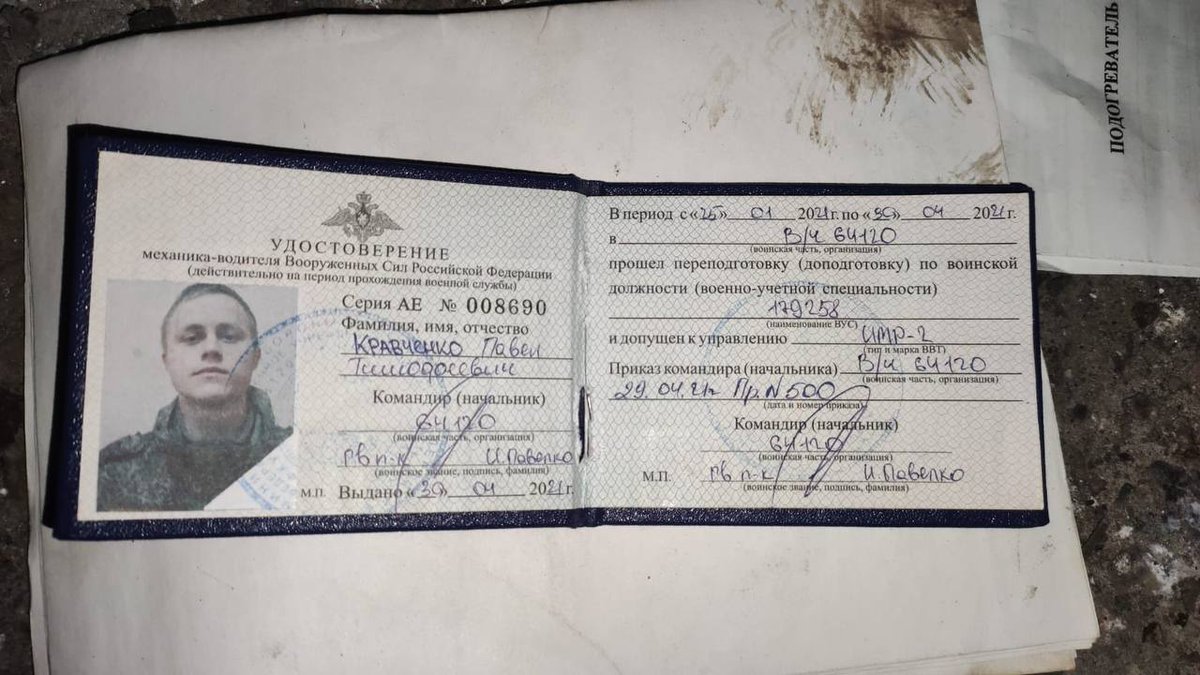 ПОДОГРЕВАТЕЛЬ
УДОСТОВЕРЕНИЕ
механика-водителя Вооруженных Сил Российской Федерации
(действительно на период прохождения военной службы)
Серия АЕ № 008690
Фамилия, имя, отчество
Кравченко Павел
Командир (начальник)
64120
(воинская часть, организация)
гв п-к И.Павелко
(воинское звание, подпись, фамилия)
М.П. Выдано «30» 04 2021г.
В период с «25» 01 2021г. по «30» 04 2021г.
в В/ч 64120
(воинская часть, организация)
прошел переподготовку (доподготовку) по воинской
должности (военно-учетной специальности)
179258
(наименование ВУС)
и допущен к управлению ИМР-2
(тип и марка ВВТ)
Приказ командира (начальника) В/ч 64120
(воинская часть, организация)
29.04.21г Пр.N500
(дата и номер приказа)
Командир (начальник)
64120
(воинская часть, организация)
М.П. гв п-к И.Павелко
(воинское звание, подпись, фамилия)